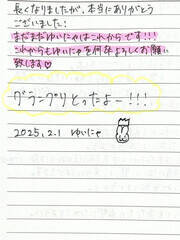 長くなりましたが、本当にありがとう
ございました!
まだまだゆいにゃはこれからです!!!
これからもゆいにゃを何卒よろしくお願い
致します♡
グランプリとったよー!!!
2025.2.1 ゆいにゃ